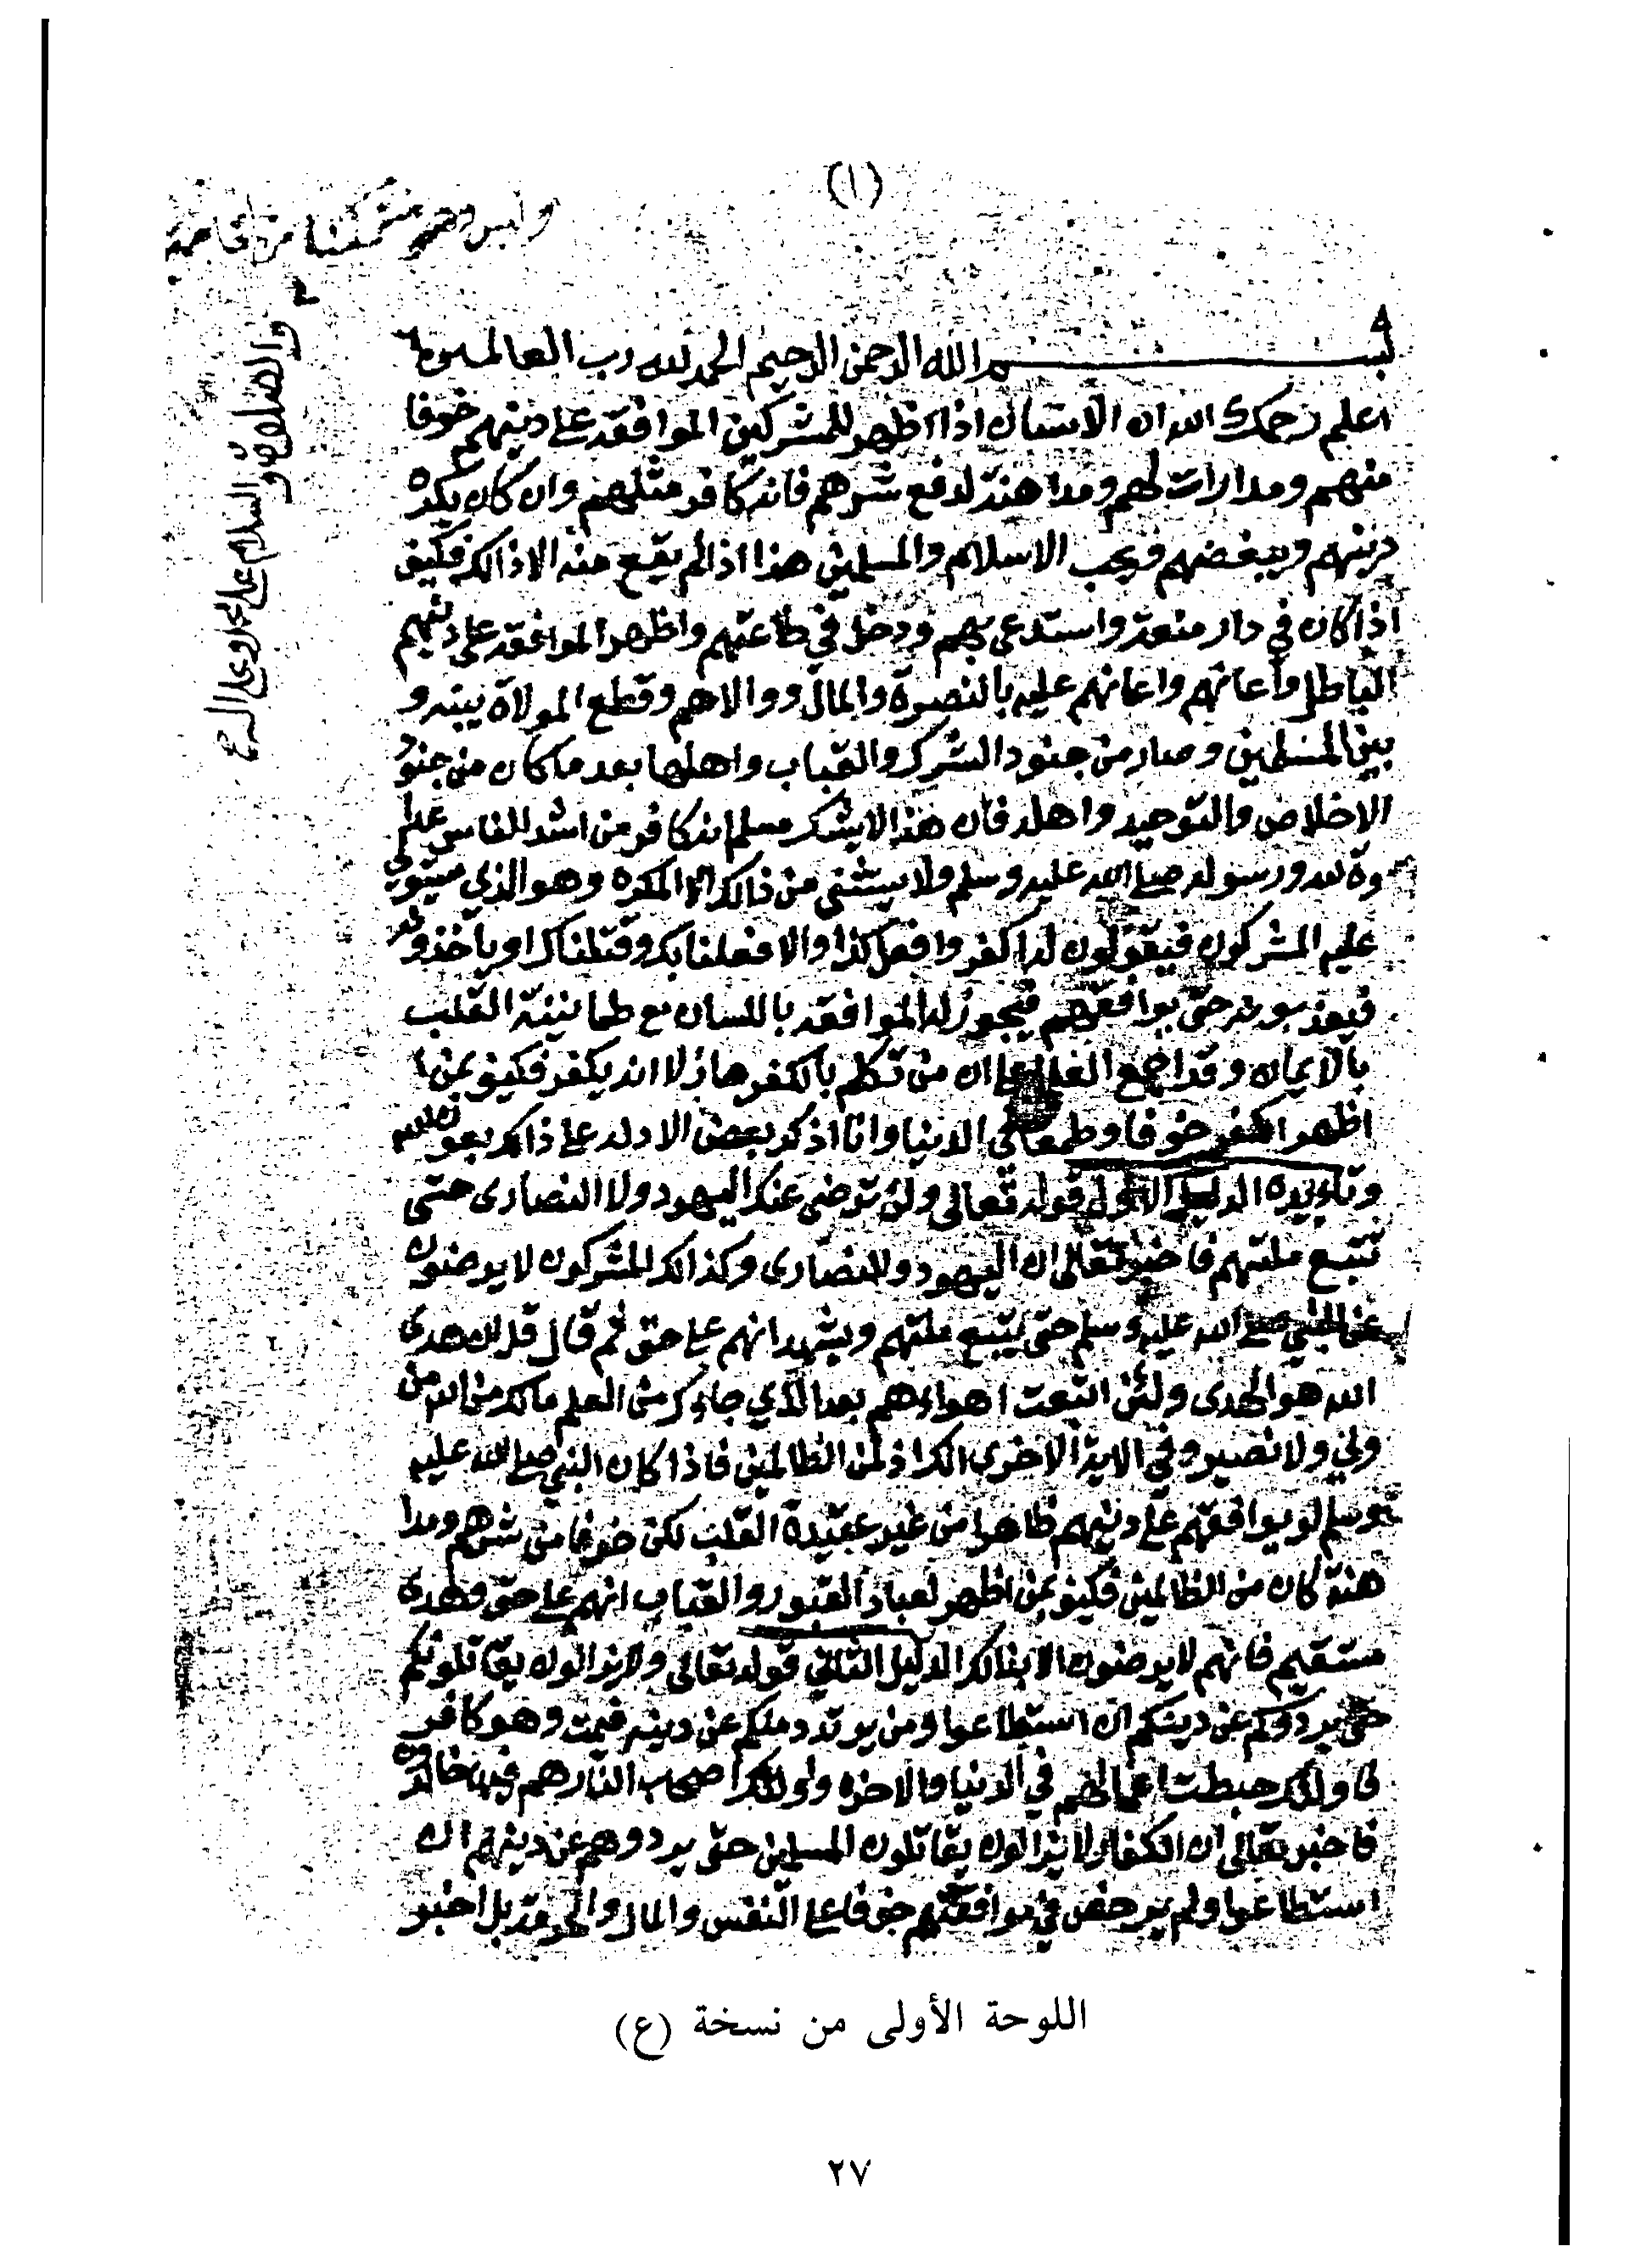 (١)
بسم الله الرحمن الرحيم الحمد لله رب العالمين
اعلم رحمك الله ان الانسان اذا اظهر للمشركين الموافقة على دينهم خوفا
منهم ومدارات لهم ومداهنة لدفع شرهم فانه كافر مثلهم وان كان يكره
دينهم ويبغضهم ويحب الاسلام والمسلمين هذا اذا لم يقع منه الا ذالك فكيف
اذا كان في دار منعة واستدعى بهم ودخل في طاعتهم واظهر الموافقة على دينهم
الباطل واعانهم عليه بالنصرة والمال ووالاهم وقطع الموالاة بينه و
بين المسلمين وصار من جنود الشرك والقباب واهلها بعد ما كان من جنود
الاخلاص والتوحيد واهله فان هذا لا يشك مسلم انه كافر من اشد الناس عدا
وة لله ورسوله صلى الله عليه وسلم ولا يستثنى من ذالك الا المكره وهو الذي يستولي
عليه المشركون فيقولون له اكفر وافعل كذا والا فعلنا بك وقتلناك او ياخذونه
فيعذبونه حتى يوافقهم فيجوز له الموافقة باللسان مع طمانينة القلب
بالايمان وقد اجمع العلماء على ان من تكلم بالكفر هازلا انه يكفر فكيف بمن
اظهر الكفر خوفا وطمعا في الدنيا وانا اذكر بعض الادلة على ذالك بعون الله
وتاييده الدليل الاول قوله تعالى ولن ترضى عنك اليهود ولا النصارى حتى
تتبع ملتهم فاخبر تعالى ان اليهود والنصارى وكذالك المشركون لا يرضون
عن النبي صلى الله عليه وسلم حتى يتبع ملتهم ويشهد انهم على حق ثم قال قل ان هدى
الله هو الهدى ولئن اتبعت اهواءهم بعد الذي جاءك من العلم مالك من الله من
ولي ولا نصير وفي الاية الاخرى انك اذ لمن الظالمين فاذا كان النبي صلى الله عليه
وسلم لو يوافقهم على دينهم ظاهرا من غير عقيدة القلب لكن خوفا من شرهم ومدا
هنة كان من الظالمين فكيف بمن اظهر لعباد القبور والقباب انهم على حق وهدى
مستقيم فانهم لا يرضون الا بذالك الدليل الثاني قوله تعالى ولا يزالون يقاتلونكم
حتى يردوكم عن دينكم ان استطاعوا ومن يرتدد منكم عن دينه فيمت وهو كافر
فاولئك حبطت اعمالهم في الدنيا والاخرة واولئك اصحاب النار هم فيها خالدون
فاخبر تعالى ان الكفار لا يزالون يقاتلون المسلمين حتى يردوهم عن دينهم ان
استطاعوا ولم يرخص في موافقتهم خوفا على النفس والمال والحرمة بل اخبر
والصلوة والسلام على محمد وعلى اله
اللوحة الأولى من نسخة (ع)
٢٧